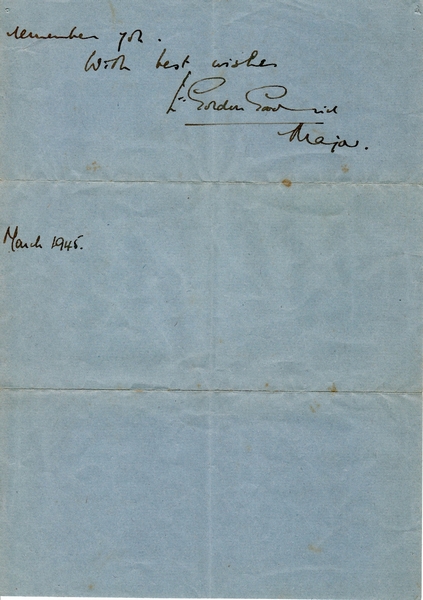 remember you.
With best wishes
Gordon
Major.
March 1945.